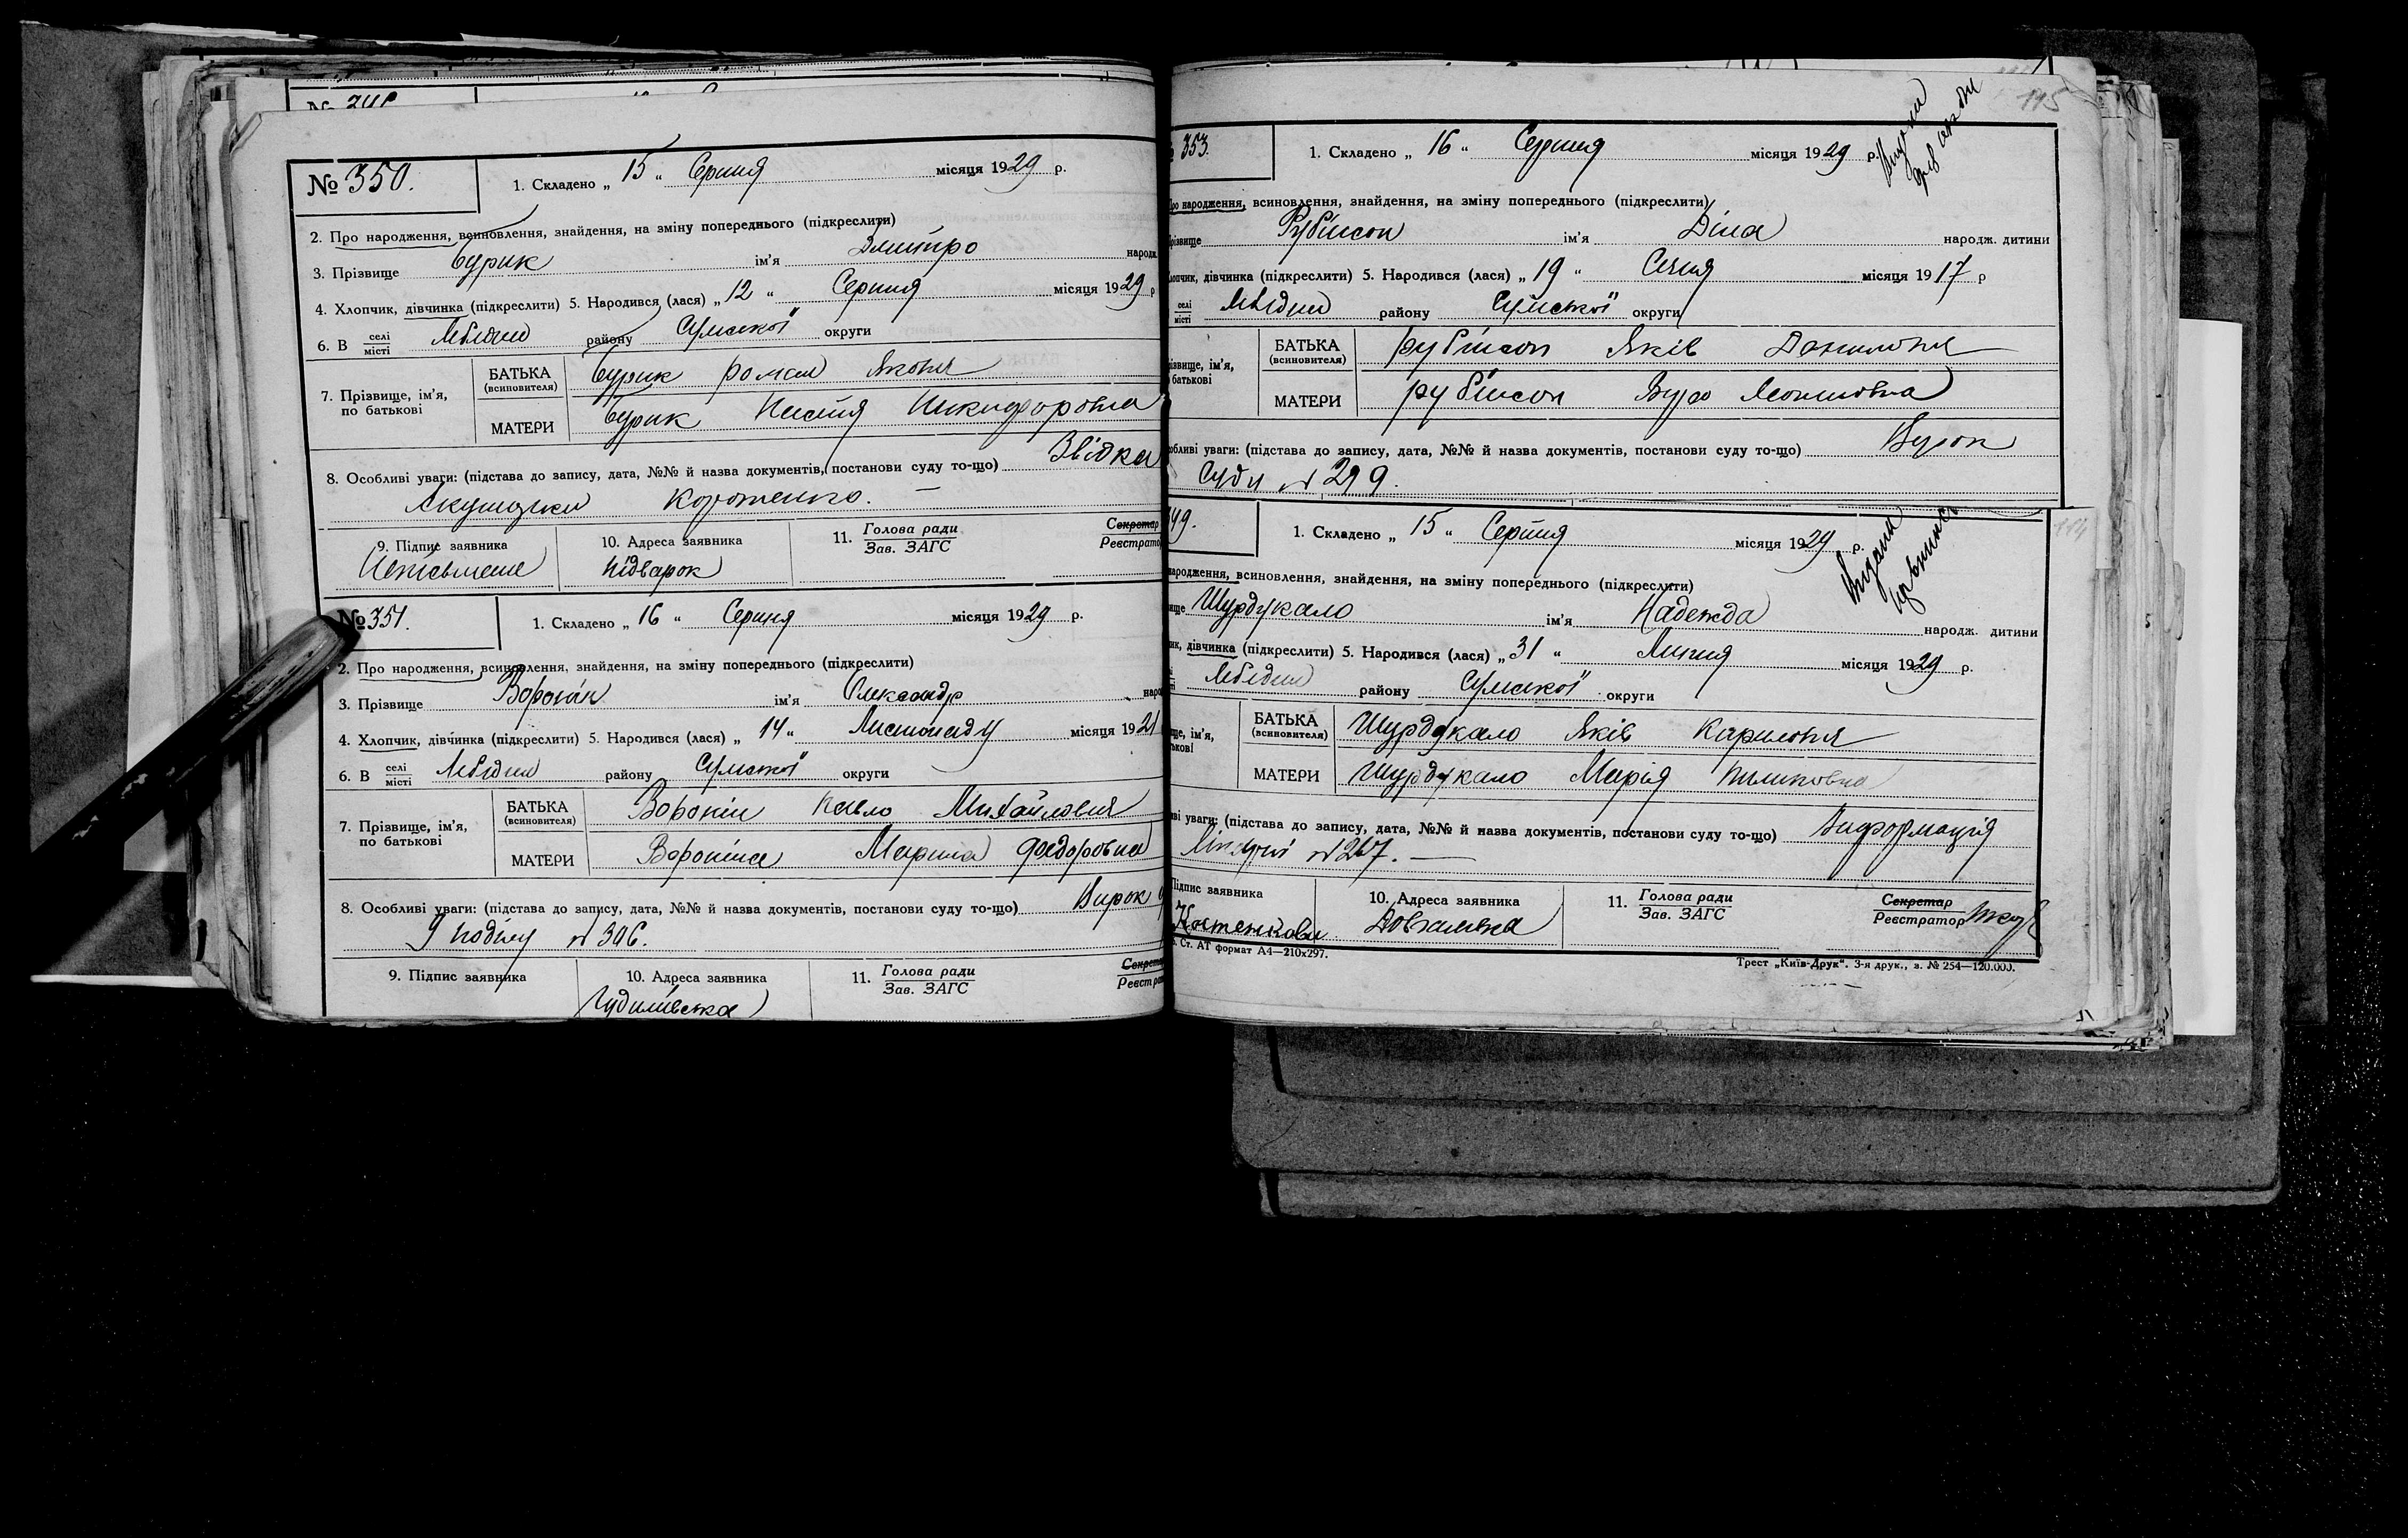 № 350.
1. Складено „ 15 “ Серпня місяця 1929 р.
2. Про народження, всиновлення, знайдення, на зміну попереднього (підкреслити)
3. Прізвище Бурик ім'я Дмитро народж.
4. Хлопчик, дівчинка (підкреслити) 5. Народився (лася) „ 12 “ Серпня місяця 1929 р
6. В селі місті Лебедин району Сумської округи
7. Прізвище, ім'я, по батькові
БАТЬКА (всиновителя) Бурик Роман Якович
МАТЕРИ Бурик Настя Никифоровна
8. Особливі уваги: (підстава до запису, дата, №№ й назва документів, постанови суду то-що) Звідка
Акушерки
9. Підпис заявника
10. Адреса заявника Підварок
11. Голова ради Зав. ЗАГС
Секретар Реєстратор
№ 351.
1. Складено „ 16 “ Серпня місяця 1929 р.
2. Про народження, всиновлення, знайдення, на зміну попереднього (підкреслити)
3. Прізвище Воронін ім'я Олександр наро
4. Хлопчик, дівчинка (підкреслити) 5. Народився (лася) „ 14 “ Листопаду місяця 1921
6. В селі місті Лебедин району Сумської округи
7. Прізвище, ім'я, по батькові
БАТЬКА (всиновителя) Воронін Павло Михайлович
МАТЕРИ Вороніна Марина Федоровна
8. Особливі уваги: (підстава до запису, дата, №№ й назва документів, постанови суду то-що) Вирок
№ 306.
9. Підпис заявника
10. Адреса заявника
11. Голова ради Зав. ЗАГС
115
353.
1. Складено „ 16 “ Серпня місяця 1929 р.
Про народження, всиновлення, знайдення, на зміну попереднього (підкреслити)
Прізвище Рубінсон ім'я Діна народж. дитини
Хлопчик, дівчинка (підкреслити) 5. Народився (лася) „ 19 “ Січня місяця 1917 р
селі місті Лебедин району Сумської округи
БАТЬКА (всиновителя) Рубінсон Яків Данилович
МАТЕРИ Рубінсон
уваги: (підстава до запису, дата, №№ й назва документів, постанови суду то-що) Вирок
Суду № 299.
349.
1. Складено „ 15 “ Серпня місяця 1929 р.
народження, всиновлення, знайдення, на зміну попереднього (підкреслити)
Шурдукало ім'я Надежда народж. дитини
дівчинка (підкреслити) 5. Народився (лася) „ 31 “ Липня місяця 1929 р.
Лебедин району Сумської округи
БАТЬКА (всиновителя) Шурдукало Яків Карпович
МАТЕРИ Шурдукало Марія
уваги: (підстава до запису, дата, №№ й назва документів, постанови суду то-що) Информація
№ 267.
Підпис заявника
10. Адреса заявника
11. Голова ради Зав. ЗАГС
Секретар Реєстратор
Ст. АТ формат А4—210х297.
Трест „Київ-Друк“. 3-я друк., з. № 254—120.000.